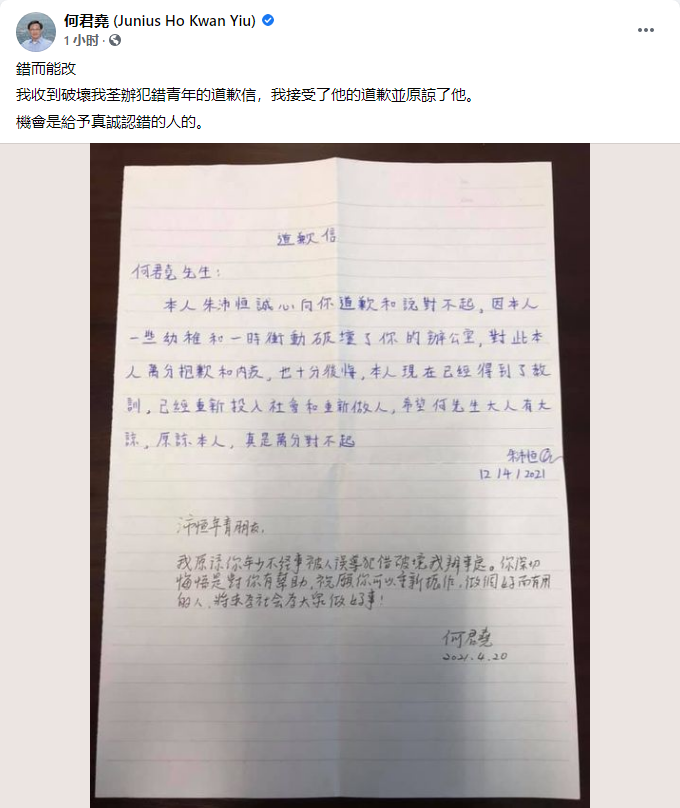 何君堯 (Junius Ho Kwan Yiu)
1 小时 ·
錯而能改
我收到破壞我荃辦犯錯青年的道歉信，我接受了他的道歉並原諒了他。
機會是給予真誠認錯的人的。
道歉信
何君堯先生：
本人朱沛恒誠心向你道歉和說對不起，因本人
一些幼稚和一時衝動破壞了你的辦公室，對此本
人萬分抱歉和内疚，也十分後悔，本人現在已經得到了教
訓，已經重新投入社會和重新做人，希望何先生大人有大
諒，原諒本人，真是萬分對不起
朱沛恒
12/4/2021
沛恒年青朋友，
我原諒你年少不経事被人誤導犯錯破壞我辦事處。你深切
悔悟是對你有幫助，祝願你可以重新振作，做個好而有用
的人，將來為社會為大眾做好事！
何君堯
2021.4.20